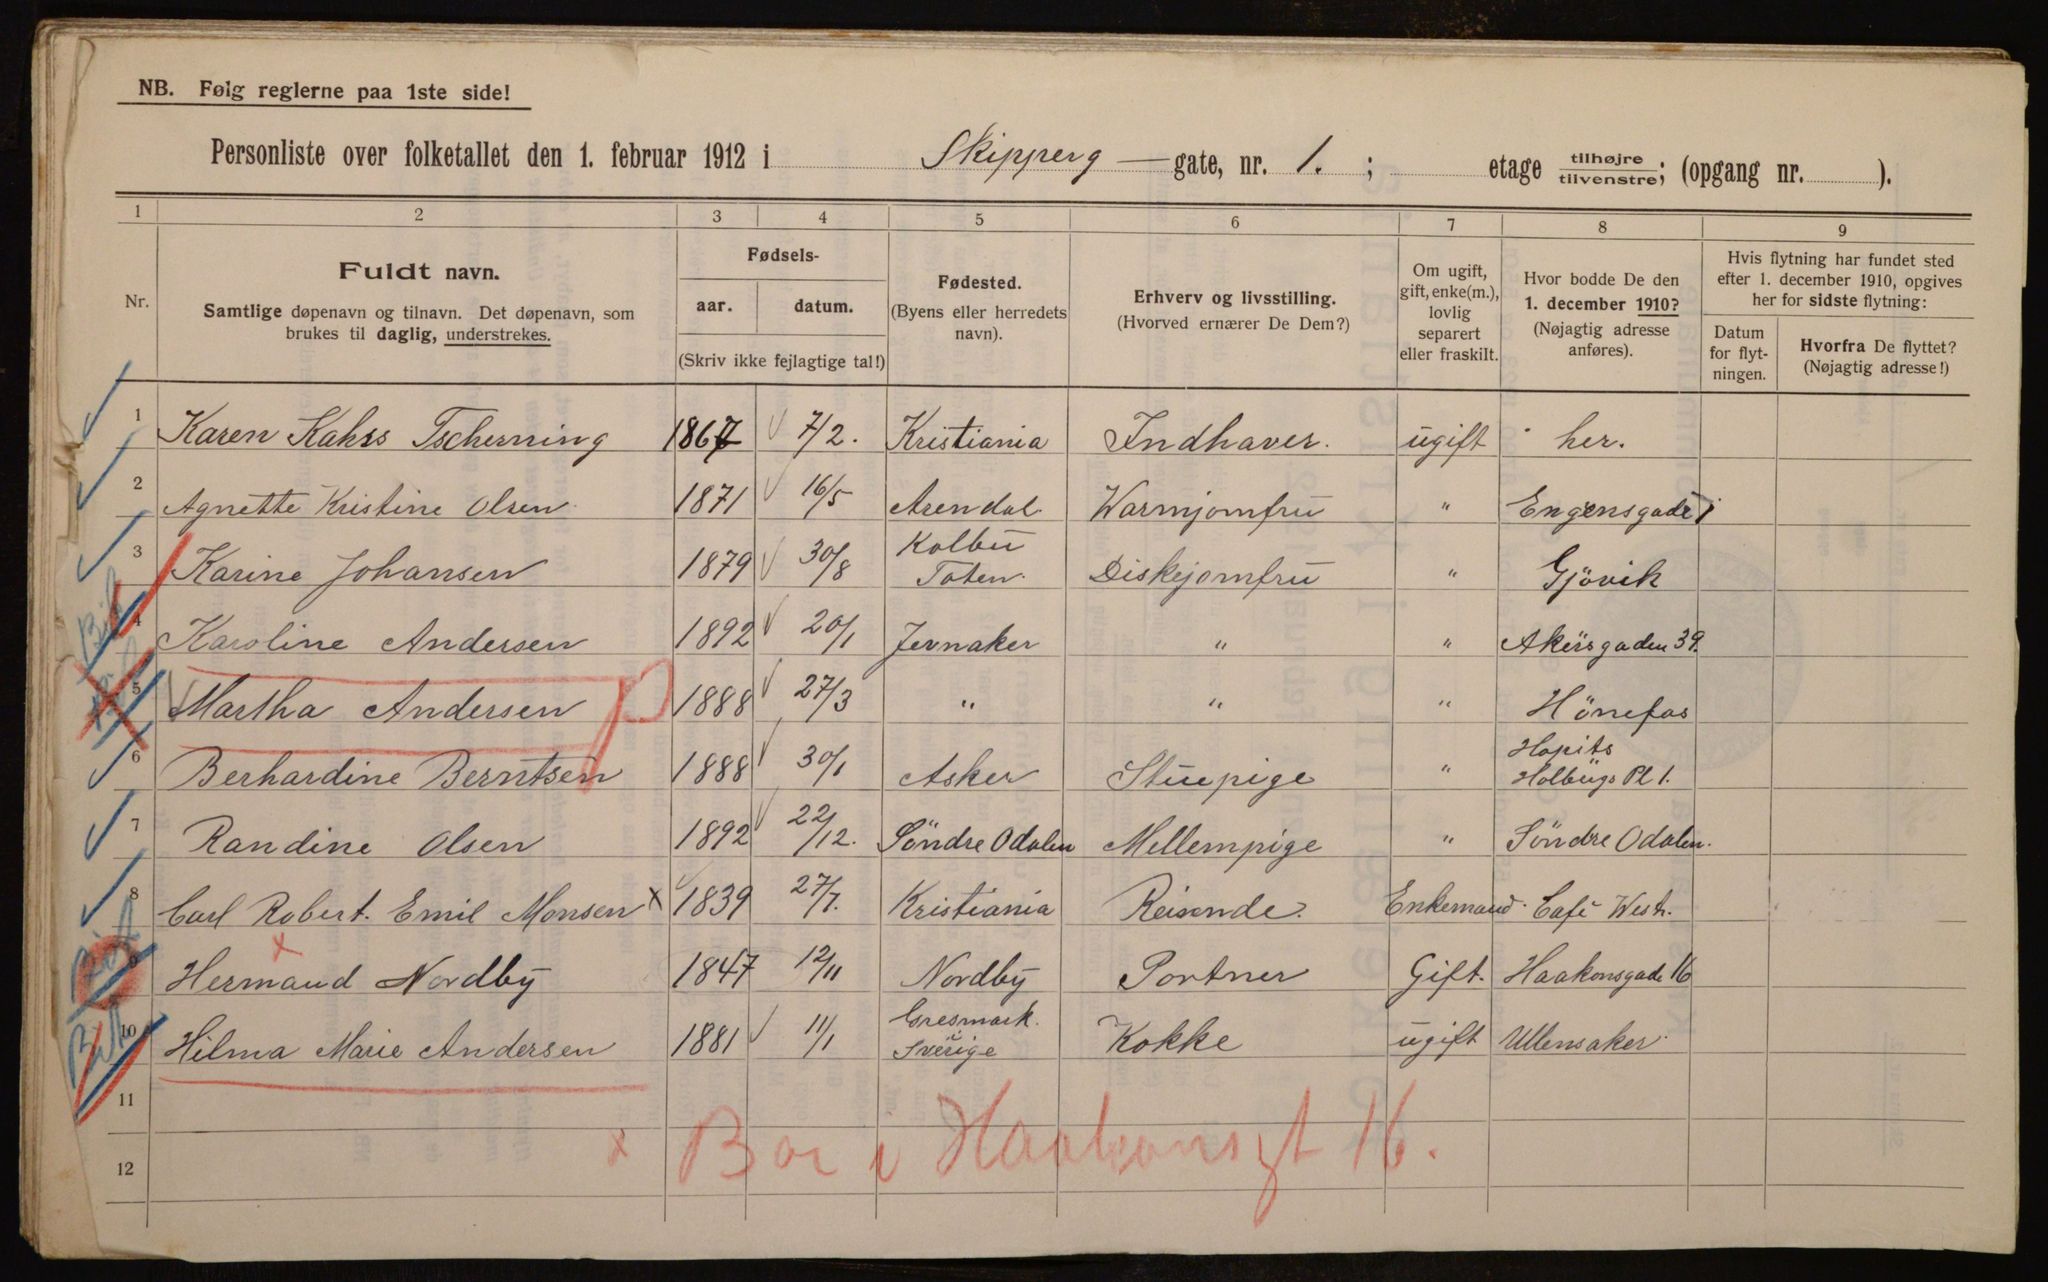 NB. Følg reglerne paa 1ste side!
Personliste over folketallet den 1. februar 1912 i Skipperg — gate, nr. 1. ; etage tilhøjre / tilvenstre; (opgang nr. ).
1 2 3 4 5 6 7 8 9
Nr.
Fuldt navn.
Samtlige døpenavn og tilnavn. Det døpenavn, som
brukes til daglig, understrekes.
Fødsels-
aar. datum.
(Skriv ikke fejlagtige tal!)
Fødested.
(Byens eller herredets
navn).
Erhverv og livsstilling.
(Hvorved ernærer De Dem?)
Om ugift,
gift, enke(m.),
lovlig
separert
eller fraskilt.
Hvor bodde De den
1. december 1910?
(Nøjagtig adresse
anføres).
Hvis flytning har fundet sted
efter 1. december 1910, opgives
her for sidste flytning:
Datum
for flyt-
ningen.
Hvorfra De flyttet?
(Nøjagtig adresse!)
1 Karen Kahrs Tscherning 1867 7/2. Kristiania Indhaver. ugift her.
2 Agnette Kristine Olsen 1871 16/5 Arendal. Warmjomfru " Engensgade 7
3 Karine Johansen 1879 30/8 Kolbu Toten. Diskejomfru " Gjövik
4 Karoline Andersen 1892 20/1 Jevnaker " " Akersgaden 39.
5 Martha Andersen 1888 27/3 " " " Hönefos
6 Berhardine Berntsen 1888 30/1 Asker Stuepige " Hopits Holbergs Pl 1.
7 Randine Olsen 1892 22/12. Söndre Odalen Mellempige " Söndre Odalen.
8 Carl Robert. Emil Monsen x 1839 27/7. Kristiania Reisende. Enkemand. Café West.
9 Hermand Nordby 1847 12/11 Nordby Portner Gift. Haakonsgade 16
10 Hilma Marie Andersen 1881 11/1 Sverige Kokke ugift Ullensaker.
11
x Bor i Haakonsgt 16.
12